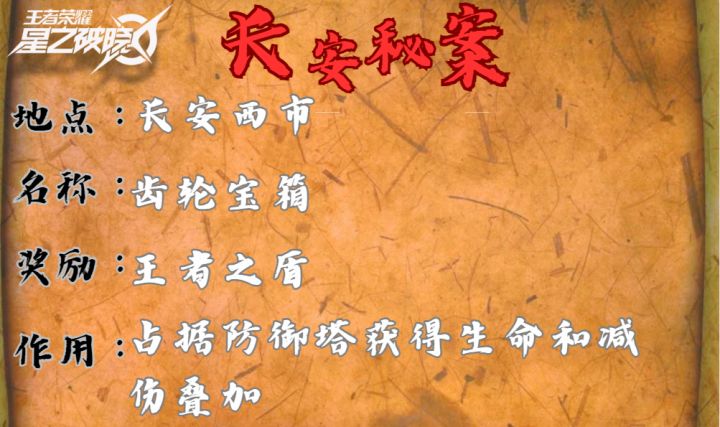 王者荣耀
星之破晓
长安秘案
地点：长安西市
名称：齿轮宝箱
奖励：王者之盾
作用：占据防御塔获得生命和减
伤叠加